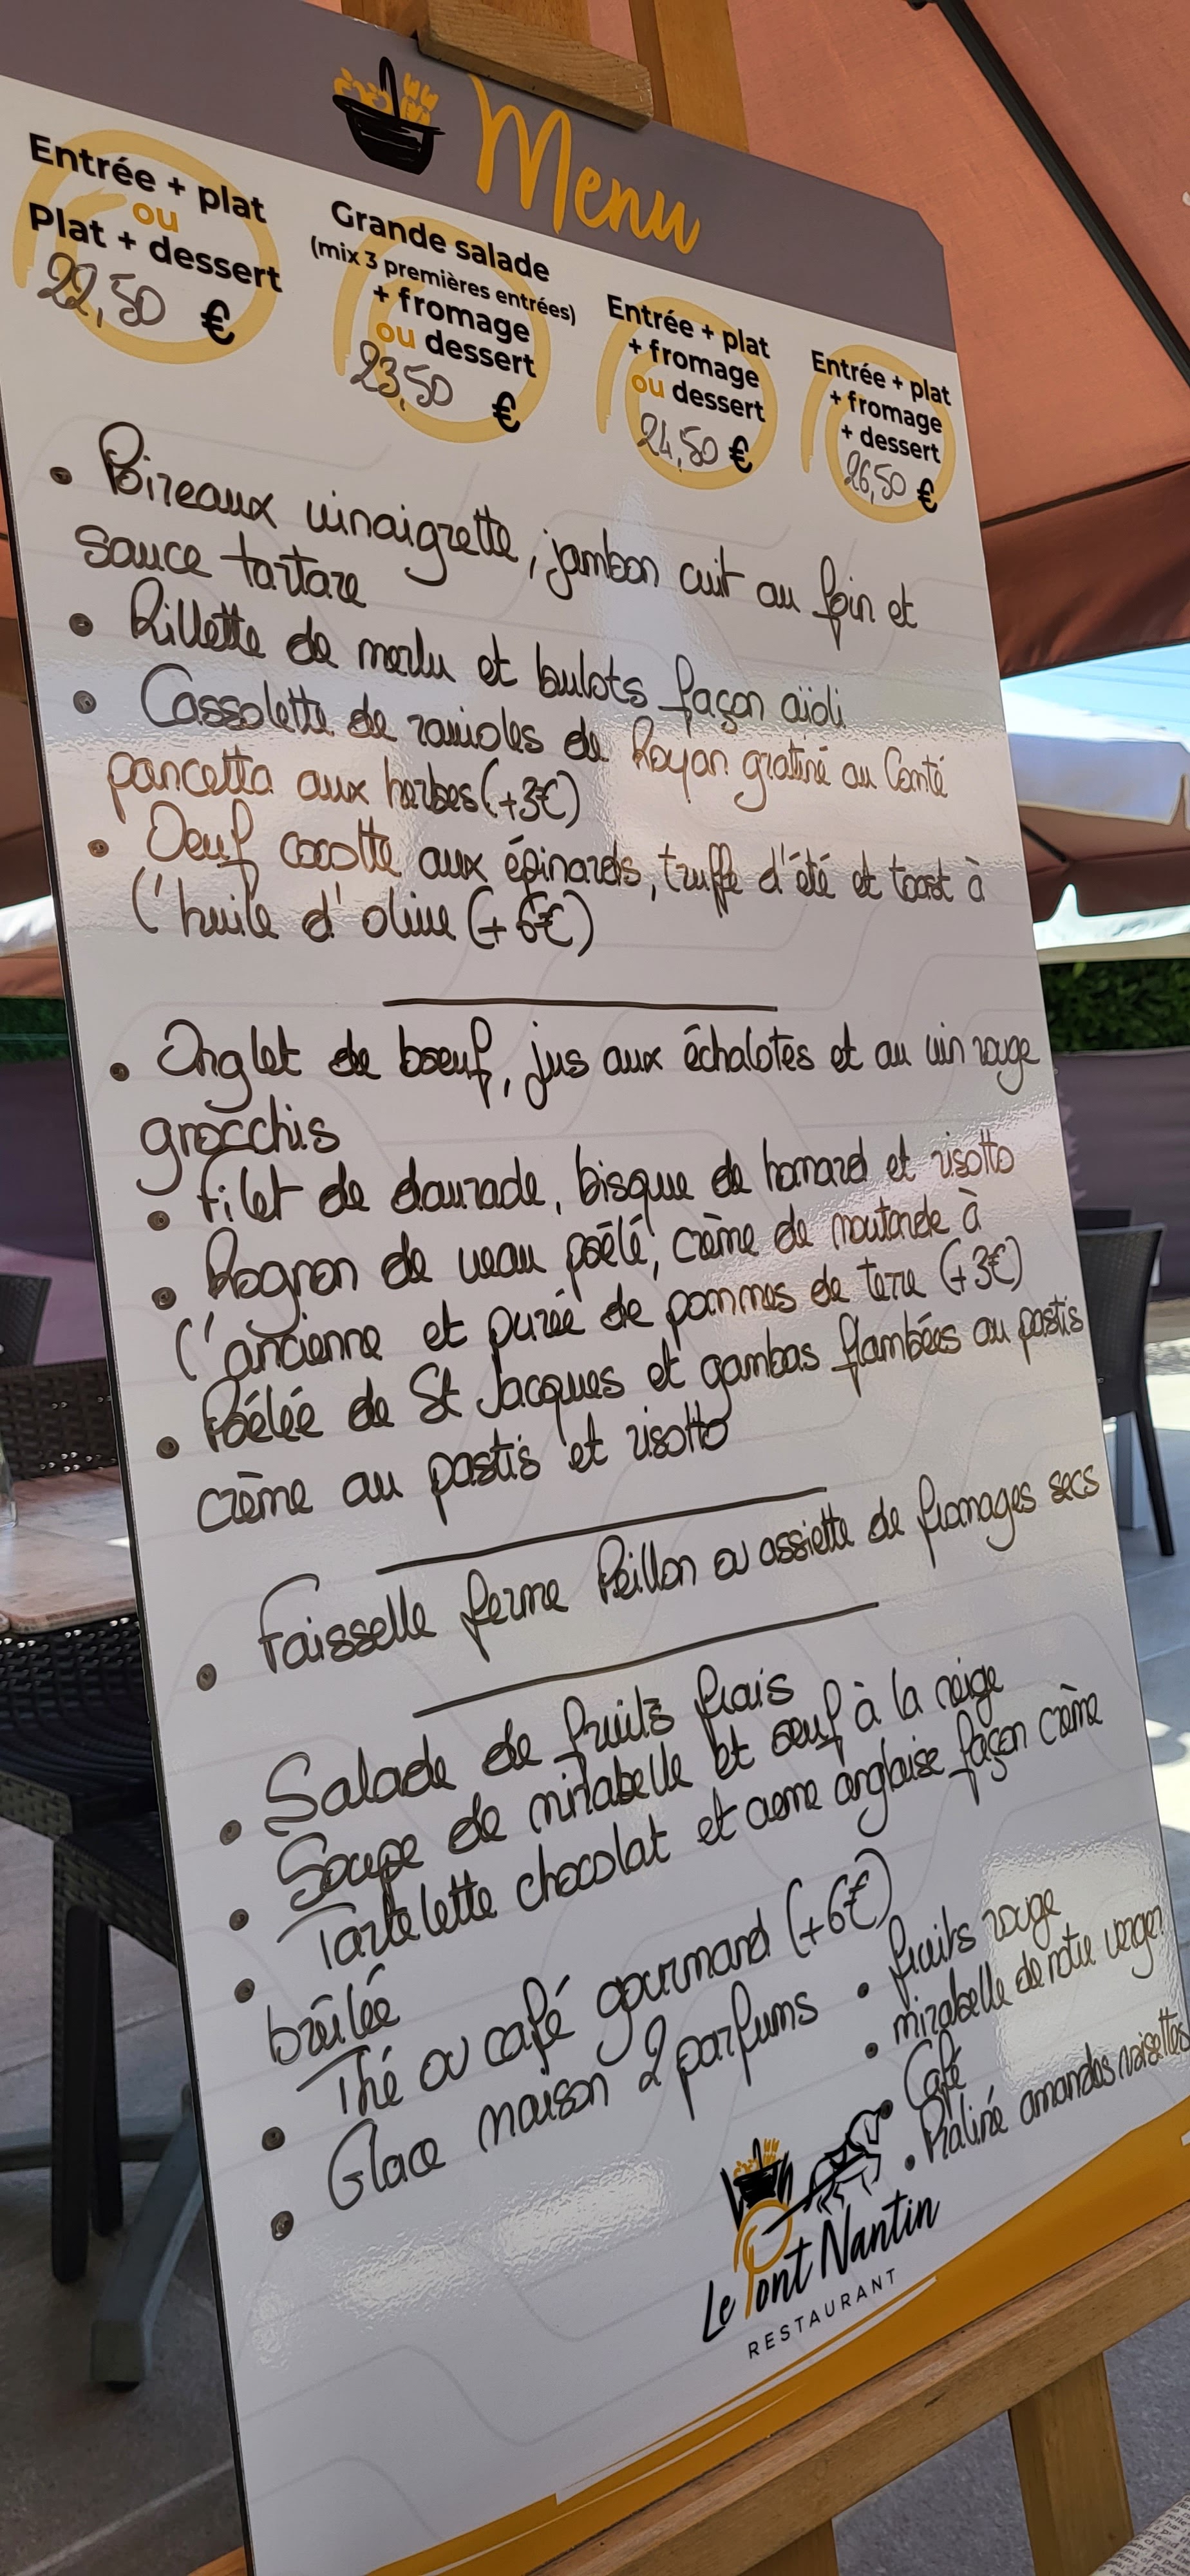 Menu
Entrée + plat
ou
Plat + dessert
22,50 €
Grande salade
(mix 3 premières entrées)
+ fromage
ou dessert
23,50 €
Entrée + plat
+ fromage
ou dessert
24,50 €
Entrée + plat
+ fromage
+ dessert
26,50 €
• Poireaux vinaigrette, jambon cuit au foin et
sauce tartare
• Rillette de merlu et bulots façon aïoli
• Cassolette de ravioles de Royan gratiné au Comté
pancetta aux herbes (+3€)
• Oeuf cocotte aux épinards, truffe d'été et toast à
l'huile d'olive (+6€)
• Onglet de boeuf, jus aux échalotes et au vin rouge
gnocchis
• Filet de daurade, bisque de homard et risotto
• Rognon de veau poêlé, crème de moutarde à
l'ancienne et purée de pommes de terre (+3€)
• Poêlée de St Jacques et gambas flambées au pastis
crème au pastis et risotto
• Faisselle ferme Peillon ou assiette de fromages secs
• Salade de fruits frais
• Soupe de mirabelle et oeuf à la neige
• Tartelette chocolat et crème anglaise façon crème
brûlée
• Thé ou café gourmand (+6€)
• Glace maison 2 parfums
• fruits rouge
• mirabelle de notre verger
• Café
• Praliné amandes noisettes
Le Pont Nantin
RESTAURANT